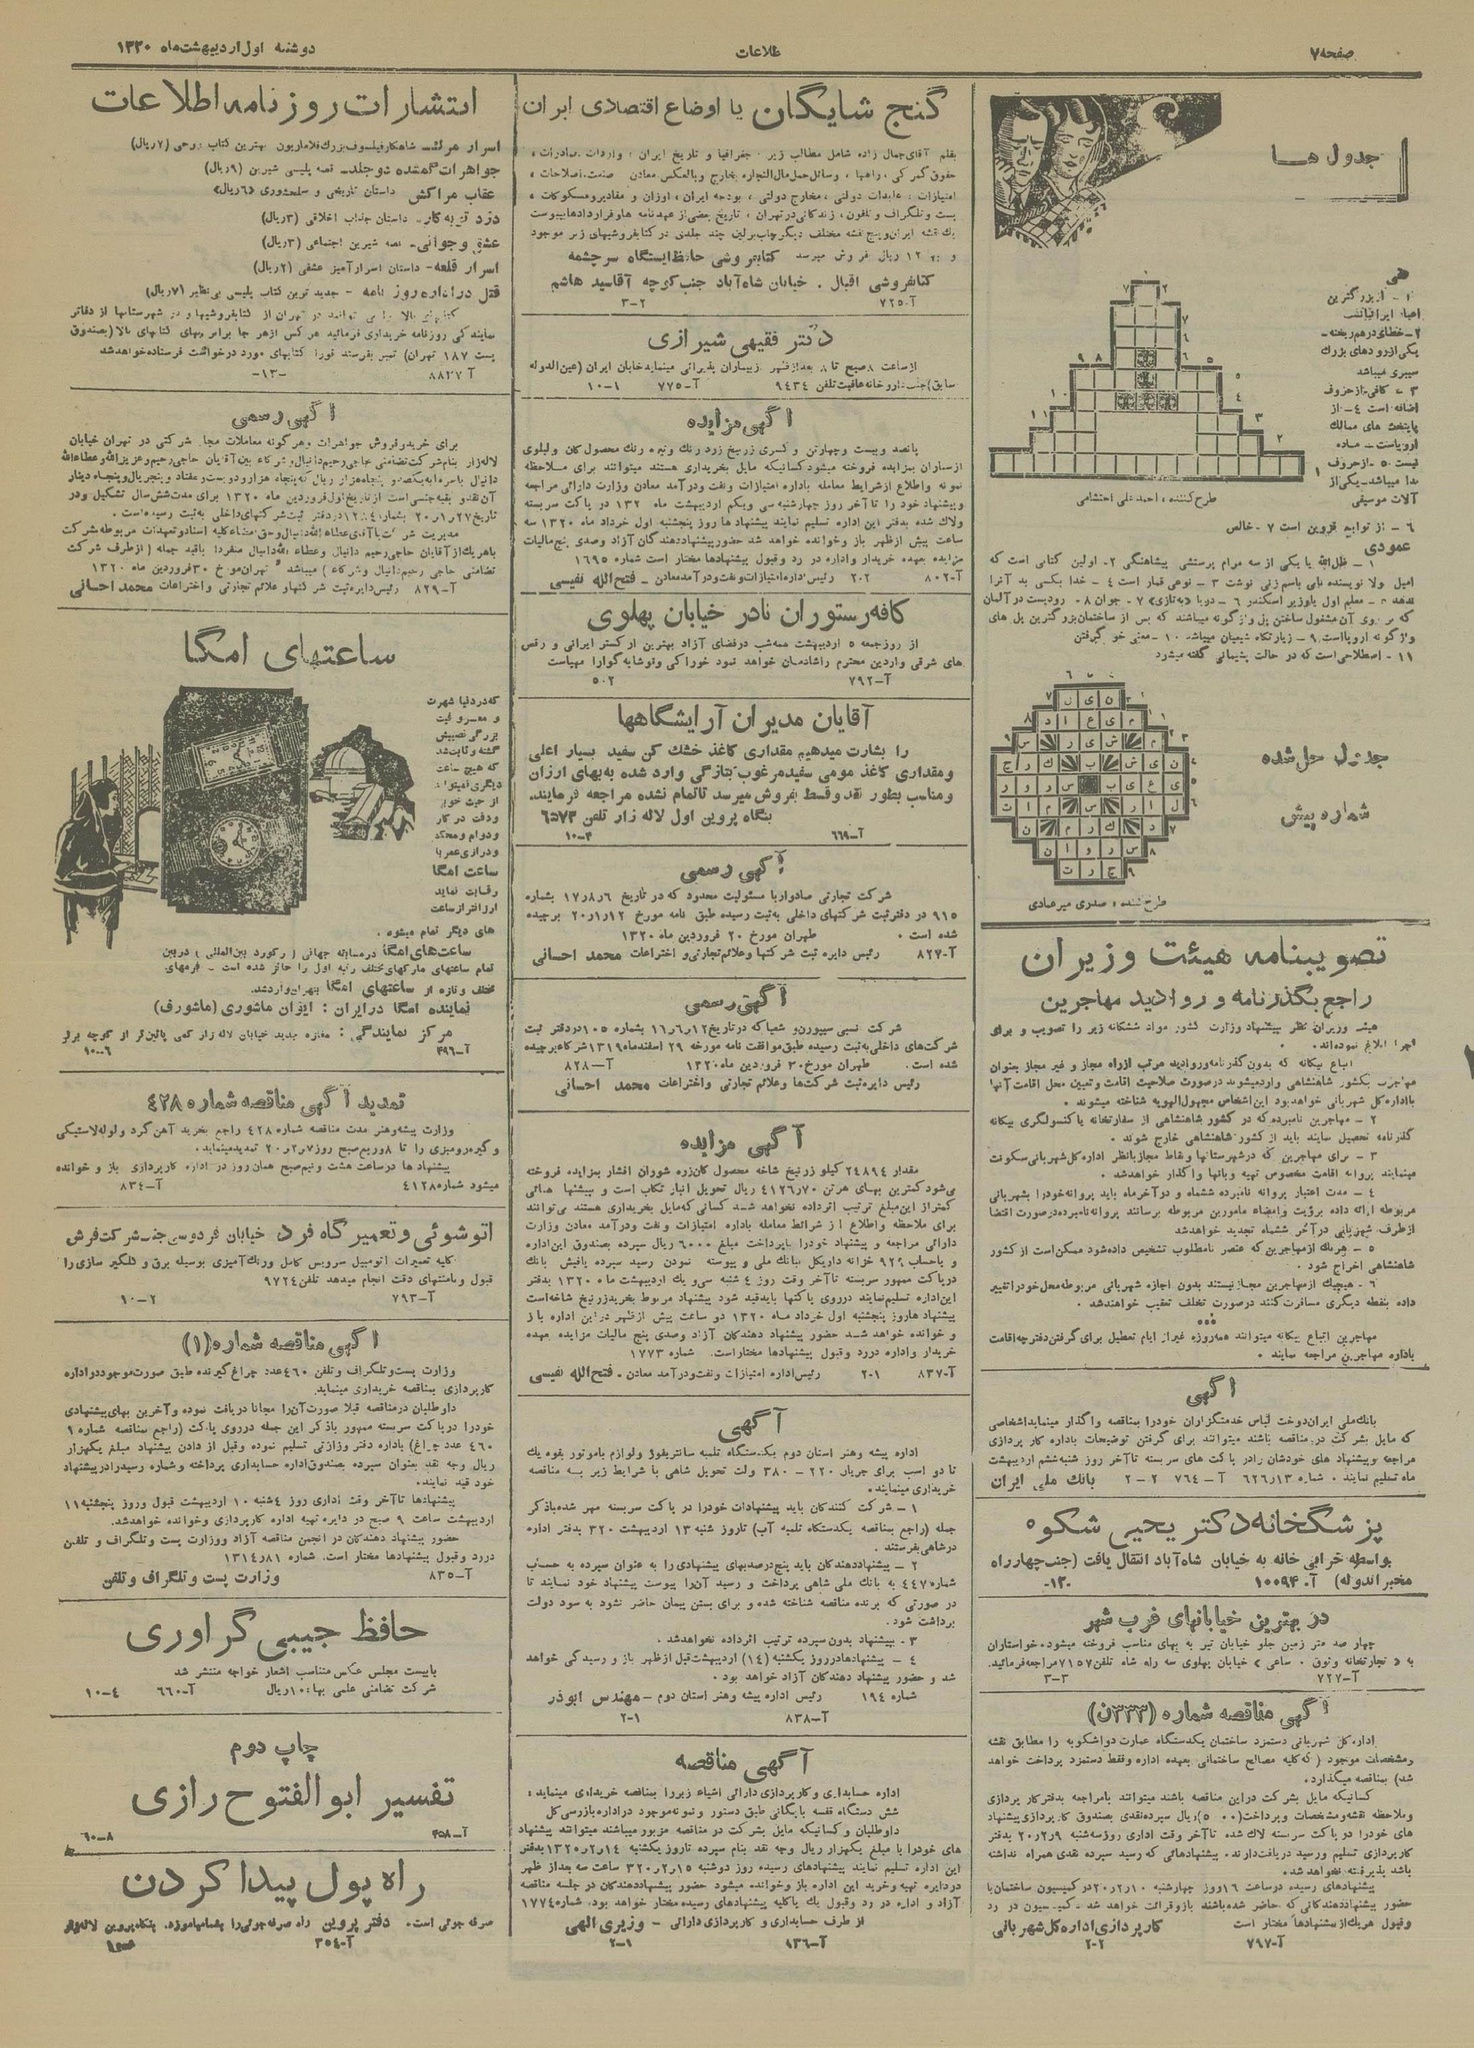 صفحه ۷
طلاعات
دوشنبه اول اردیبهشت ماه ۱۳۲۰
جدول ها
یکی از رودهای بزرگ
سیبری میباشد
اضافه است ٤- از
پایتخت های ممالک
آلات موسیقی
طرح کننده ، احمد علی احتشامی
٦ - از توابع قزوین است ۷ - خالص
عمودی
۱۱ - اصطلاحی است که در حالت پشیمانی گفته میشود
جدول حل شده
شماره پیش
طرح کننده ، صدری میرعمادی
تصویبنامه هیئت وزیران
راجع بگذرنامه و روادید مهاجرین
هیئت وزیران نظر پیشنهاد وزارت کشور مواد ششگانه زیر را تصویب و برای
اجرا ابلاغ نموده‌اند .
اتباع بیگانه که بدون گذرنامه و روادید مرتب از راه مجاز و غیر مجاز بعنوان
مهاجرت بکشور شاهنشاهی وارد میشوند در صورت صلاحیت اقامت و تعیین محل اقامت آنها
با اداره کل شهربانی خواهد بود این اشخاص مجهول الهویه شناخته میشوند .
۲ - مهاجرین نامبرده که در کشور شاهنشاهی از سفارتخانه یا کنسولگری بیگانه
گذرنامه تحصیل نمایند باید از کشور شاهنشاهی خارج شوند .
۳ - برای مهاجرین که در شهرستانها و نقاط مجاز بانظر اداره کل شهربانی سکونت
مینمایند پروانه اقامت مخصوص تهیه و بآنها واگذار خواهد شد .
٤ - مدت اعتبار پروانه نامبرده ششماه و در آخر ماه باید پروانه خود را بشهربانی
مربوطه ارائه داده برؤیت و امضاء مامورین مربوطه برسانند پروانه نامبرده در صورت اقتضا
از طرف شهربانی در آخر ششماه تجدید خواهد شد
۵ - هریک از مهاجرین که عنصر نامطلوب تشخیص داده شود ممکن است از کشور
شاهنشاهی اخراج شود .
٦ - هیچیک از مهاجرین مجاز نیستند بدون اجازه شهربانی مربوطه محل خود را تغییر
داده بنقطه دیگری مسافرت کنند در صورت تخلف تعقیب خواهند شد .
مهاجرین اتباع بیگانه میتوانند همه‌روزه غیر از ایام تعطیل برای گرفتن دفترچه اقامت
باداره مهاجرین مراجعه نمایند .
آگهی
بانک ملی ایران دوخت لباس خدمتگزاران خود را بمناقصه واگذار مینماید اشخاصی
که مایل بشرکت در مناقصه باشند میتوانند برای گرفتن توضیحات باداره کارپردازی
مراجعه و پیشنهاد های خودشان را در پاکت های سربسته تا آخر روز شنبه ششم اردیبهشت
ماه تسلیم نمایند . شماره ٦٢٦٫١٣ آ- ٧٦٤ ۲ - ۲ بانک ملی ایران
پزشگخانه دکتر یحیی شکوه
بواسطه خرابی خانه به خیابان شاه‌آباد انتقال یافت (جنب چهارراه
مخبرالدوله) آ- ۱۰۰۹۴ -۱۳۰
در بهترین خیابانهای غرب شهر
چهار صد متر زمین جلو خیابان تیر به بهای مناسب فروخته میشود . خواستاران
به « تجارتخانه وثوق . ساعی » خیابان پهلوی سه راه شاه تلفن ۷۱۵۷ مراجعه فرمائید.
آ-۷۲۷ ۳-۳
آگهی مناقصه شماره (۳۳۳ن)
اداره کل شهربانی دستمزد ساختمان یکدستگاه عمارت دو اشکوبه را مطابق نقشه
ومشخصات موجود ( که کلیه مصالح ساختمانی بعهده اداره و فقط دستمزد پرداخت خواهد
شد) بمناقصه میگذارد .
های خود را در پاکت سربسته لاک شده تا آخر وقت اداری روز سه شنبه ۲۰٫۲٫۹ بدفتر
کارپردازی تسلیم و رسید دریافت دارند . پیشنهادهائی که رسید سپرده نقدی همراه نداشته
باشد پذیرفته نخواهد شد .
پیشنهادهای رسیده در ساعت ۱۶ روز چهارشنبه ۲۰٫۲٫۱۰ در کمیسیون ساختمان با
حضور پیشنهاد دهندگانی که حاضر شده باشند باز و قرائت خواهد شد . کمیسیون در رد
و قبول هریک از پیشنهادها مختار است کارپردازی اداره کل شهربانی
آ-۷۹۷ ۲-۲
گنج شایگان یا اوضاع اقتصادی ایران
بقلم آقای جمال زاده شامل مطالب زیر ، جغرافیا و تاریخ ایران ، واردات ، صادرات ،
حقوق گمرکی ، راهها ، وسائل حمل مال التجاره بخارج وبالعکس معادن صنعت ، اصلاحات ،
امتیازات ، عایدات دولتی ، مخارج دولتی ، بودجه ایران ، اوزان و مقادیر و مسکوکات ،
پست و تلگراف و تلفون ، زندگانی در تهران ، تاریخ بعضی از عهدنامه ها و قراردادها بپیوست
یک نقشه ایران و پنج نقشه مختلف دیگر چاپ برلین چند جلدی در کتابفروشیهای زیر موجود
و به ۱۲ ریال فروش میرسد کتابفروشی حافظ ایستگاه سرچشمه
کتابفروشی اقبال . خیابان شاه‌آباد جنب کوچه آقاسید هاشم
آ-۷۲۵ ۳-۲
دکتر فقیهی شیرازی
از ساعت ۸ صبح تا ۸ بعد از ظهر از بیماران پذیرائی مینماید خیابان ایران (عین‌الدوله
سابق) جنب داروخانه عافیت تلفن ۹٤۳٤ آ-۷۷۵ ۱۰-۱
آگهی مزایده
پانصد و بیست و چهار تن و کسری زرنیخ زرد رنگ و تیره رنگ محصول کان ولیلوی
ازساران بمزایده فروخته میشود کسانیکه مایل بخریداری هستند میتوانند برای ملاحظه
نمونه و اطلاع از شرایط معامله باداره امتیازات و نفت و درآمد معادن وزارت دارائی مراجعه
وپیشنهاد خود را تا آخر روز چهارشنبه سی ویکم اردیبهشت ماه ۱۳۲۰ در پاکت سربسته
ولاک شده بدفتر این اداره تسلیم نمایند پیشنهاد ها روز پنجشنبه اول خرداد ماه ۱۳۲۰ سه
ساعت پیش از ظهر باز و خوانده خواهد شد حضور پیشنهاد دهندگان آزاد و صدی پنج مالیات
مزایده بعهده خریدار و اداره در رد و قبول پیشنهادها مختار است شماره ۱۶۹۵
آ-۸۰۲ ۲-۲ رئیس اداره امتیازات و نفت و درآمد معادن - فتح‌الله نفیسی
کافه رستوران نادر خیابان پهلوی
از روز جمعه ۵ اردیبهشت همه شب در فضای آزاد بهترین ارکستر ایرانی و رقص
های شرقی واردین محترم را شادمان خواهد نمود خوراکی و نوشابه گوارا مهیاست
آ-۷۹۲ ۵-۲
آقایان مدیران آرایشگاهها
را بشارت میدهیم مقداری کاغذ خشک کن سفید بسیار اعلی
ومقداری کاغذ مومی سفید مرغوب بتازگی وارد شده به بهای ارزان
ومناسب بطور نقد و قسط بفروش میرسد تا تمام نشده مراجعه فرمایند.
بنگاه پروین اول لاله زار تلفن ۶۵۷۴
آ-۶۶۹ ۱۰-۴
آگهی رسمی
شرکت تجارتی صادو اربا مسئولیت محدود که در تاریخ ۱۷٫۸٫۶ بشماره
۹۱۵ در دفتر ثبت شرکتهای داخلی به ثبت رسیده طبق نامه مورخ ۲۰٫۱٫۱۲ برچیده
شده است . طهران مورخ ۲۰ فروردین ماه ۱۳۲۰
آ-۸۲۷ رئیس دایره ثبت شرکتها وعلائم تجارتی و اختراعات محمد احسانی
آگهی رسمی
شرکت های داخلی به ثبت رسیده طبق موافقت نامه مورخه ۲۹ اسفند ماه ۱۳۱۹ شرکاء برچیده
شده است . طهران مورخ ۳۰ فروردین ماه ۱۳۲۰ آ-۸۲۸
رئیس دایره ثبت شرکت‌ها وعلائم تجارتی واختراعات محمد احسانی
آگهی مزایده
مقدار ۲٤۸۹٤ کیلو زرنیخ شاخه محصول کان زره شوران افشار بمزایده فروخته
می‌شود کمترین بهای هر تن ٤١٢٦٫٧٠ ریال تحویل انبار تکاب است و پیشنهاد هائی
کمتر از این مبلغ ترتیب اثر داده نخواهد شد کسانی که مایل بخریداری هستند می‌توانند
برای ملاحظه و اطلاع از شرائط معامله باداره امتیازات و نفت و درآمد معادن وزارت
دارائی مراجعه و پیشنهاد خود را با پرداخت مبلغ ۶۰۰۰ ریال سپرده بصندوق این اداره
و یا حساب ۹۲۹ خزانه داریکل ببانک ملی و پیوسته نمودن رسید سپرده یا فیش بانک
در پاکت ممهور سربسته تا آخر وقت روز ٤ شنبه سی و یک اردیبهشت ماه ۱۳۲۰ بدفتر
این اداره تسلیم نمایند در روی پاکتها باید قید شود پیشنهاد مربوط بخرید زرنیخ شاخه است
پیشنهاد ها روز پنجشنبه اول خرداد ماه ۱۳۲۰ دو ساعت پیش از ظهر در این اداره باز
و خوانده خواهد شد حضور پیشنهاد دهندگان آزاد وصدی پنج مالیات مزایده بعهده
خریدار و اداره در رد و قبول پیشنهادها مختار است . شماره ۱۷۷۳
آ-۸۳۷ ۲-۱ رئیس اداره امتیازات و نفت و درآمد معادن . فتح‌الله نفیسی
آگهی
اداره پیشه وهنر استان دوم یکدستگاه تلمبه سانتریفوژ و لوازم باموتور بقوه یک
تا دو اسب برای جریان ۲۲۰ - ۳۸۰ ولت تحویل شاهی با شرایط زیر به مناقصه
خریداری مینمایند .
۱ - شرکت کنندگان باید پیشنهادات خود را در پاکت سربسته مهر شده باذکر
جمله (راجع بمناقصه یکدستگاه تلمبه آب) تا روز شنبه ۱۳ اردیبهشت ۳۲۰ بدفتر اداره
در شاهی بفرستند .
۲ - پیشنهاد دهندگان باید پنج درصد بهای پیشنهادی را به عنوان سپرده به حساب
شماره ٤٤٧ به بانک ملی شاهی پرداخت و رسید آن را پیوست پیشنهاد خود نمایند تا
در صورتی که برنده مناقصه شناخته شده و برای بستن پیمان حاضر نشود به سود دولت
برداشت شود .
۳ - پیشنهاد بدون سپرده ترتیب اثر داده نخواهد شد .
٤ - پیشنهادها در روز یکشنبه (۱٤) اردیبهشت قبل از ظهر باز و رسیدگی خواهد
شد و حضور پیشنهاد دهندگان آزاد خواهد بود .
شماره ۱۹٤ رئیس اداره پیشه وهنر استان دوم - مهندس ابوذر
آ-۸۳۸ ۲-۱
آگهی مناقصه
اداره حسابداری و کارپردازی دارائی اشیاء زیر را بمناقصه خریداری مینماید ،
شش دستگاه قفسه بایگانی طبق دستور و نمونه موجود در اداره بازرسی کل
داوطلبان و کسانیکه مایل بشرکت در مناقصه مزبور میباشند میتوانند پیشنهاد
های خود را با مبلغ یکهزار ریال وجه نقد بنام سپرده تا روز یکشنبه ۱۳۲۰٫۲٫۱٤ بدفتر
این اداره تسلیم نمایند پیشنهادهای رسیده روز دوشنبه ۳۲۰٫۲٫۱۵ ساعت سه بعد از ظهر
در دایره تهیه و خرید این اداره باز و خوانده میشود حضور پیشنهاد دهندگان در جلسه مناقصه
آزاد و اداره در رد و قبول یک یا کلیه پیشنهادهای رسیده مختار خواهد بود. شماره ۱۷۷٤
از طرف حسابداری و کارپردازی دارائی - وزیری الهی
آ-۸۳۶ ۲-۱
انتشارات روزنامه اطلاعات
اسرار مرگ - شاهکار فیلسوف بزرگ فلاماریون بهترین کتاب روحی (۷ریال)
جواهرات گمشده دو جلد - قصه پلیسی شیرین (۹ریال)
عقاب مراکش داستان تاریخی و سلحشوری (۶ریال)
دزد توبه کار - داستان جذاب اخلاقی (۳ریال)
عشق و جوانی - قصه شیرین اجتماعی (۳ریال)
اسرار قلعه - داستان اسرار آمیز عشقی (۲ریال)
قتل در اداره روزنامه - جدید ترین کتاب پلیسی بی‌نظیر (۷ریال)
کتابهای بالا را می توانند در تهران از کتابفروشیها و در شهرستانها از دفاتر
نمایندگی روزنامه خریداری فرمائید هر کس از هر جا برابر بهای کتابهای بالا (بصندوق
پست ۱۸۷ تهران) تمبر بفرستد فورا کتابهای مورد درخواست فرستاده خواهد شد
آ ۸۸۲۷ -۱۳۰
آگهی رسمی
برای خرید و فروش جواهرات وهرگونه معاملات مجاز شرکتی در تهران خیابان
لاله زار بنام شرکت تضامنی حاجی رحیم دانیال و شرکاء بین آقایان حاجی رحیم و عزیزالله و عطاءالله
تضامنی حاجی رحیم دانیال و شرکاء ) میباشد تهران مورخ ۳۰ فروردین ماه ۱۳۲۰
آ-۸۲۹ رئیس دایره ثبت شرکتها و علائم تجارتی و اختراعات محمد احسانی
ساعتهای امگا
که در دنیا شهرت
و معروفیت
بزرگی نصیبش
گشته و ثابت شد
که هیچ ساعت
دیگری نمیتواند
از حیث خوبی
ودقت در کار
ودوام و محکمی
ودرازی عمر با
ساعت امگا
رقابت نماید
ارزانتر از ساعت
های دیگر تمام میشود .
ساعت‌های امگا در مسابقه جهانی ( رکورد بین‌المللی ) در بین
تمام ساعتهای مارکهای مختلف رتبه اول را حائز شده است - فرمهای
مختلف و تازه از ساعتهای امگا بتهران وارد شد.
نماینده امگا در ایران : ایوان ماشوری (ماشورف)
مرکز نمایندگی : مغازه جدید خیابان لاله زار کمی پائین‌تر از کوچه برلن
آ-۴۹۶ ۱۰۰-۶
تمدید آگهی مناقصه شماره ٤٢٨
وزارت پیشه وهنر مدت مناقصه شماره ٤٢٨ راجع بخرید آهن گرد و لوله لاستیکی
و گیره رومیزی را تا ۸ و ربع صبح روز ۲۰٫۲٫۷ تمدید مینماید.
پیشنهاد ها در ساعت هشت و نیم صبح همان روز در اداره کارپردازی باز و خوانده
میشود شماره ٤١٢٨ آ-۸۳٤
اتوشوئی و تعمیرگاه فرد خیابان فردوسی جنب شرکت فرش
کلیه تعمیرات اتومبیل سرویس کامل ورنگ آمیزی بوسیله برق و گلگیر سازی را
قبول و بامنتهای دقت انجام میدهد تلفن ۹۷۲٤
آ-۷۹۳ ۱۰-۲
آگهی مناقصه شماره (۱)
وزارت پست و تلگراف و تلفن ٤٦٠ عدد چراغ گیرنده طبق صورت موجود در اداره
کارپردازی بمناقصه خریداری مینماید.
داوطلبان در مناقصه قبلا صورت آن را مجانا دریافت نموده و آخرین بهای پیشنهادی
خود را در پاکت سربسته ممهور باذکر این جمله در روی پاکت (راجع بمناقصه شماره ۱
٤٦٠ عدد چراغ) باداره دفتر وزارتی تسلیم نموده و قبل از دادن پیشنهاد مبلغ یکهزار
ریال وجه نقد بعنوان سپرده بصندوق اداره حسابداری پرداخته و شماره رسید را در پیشنهاد
خود قید نمایند .
پیشنهادها تا آخر وقت اداری روز ٤شنبه ۱۰ اردیبهشت قبول و روز پنجشنبه ۱۱
اردیبهشت ساعت ۹ صبح در دایره تهیه اداره کارپردازی وخوانده خواهد شد.
حضور پیشنهاد دهندگان در انجمن مناقصه آزاد ووزارت پست و تلگراف و تلفن
در رد و قبول پیشنهادها مختار است. شماره ۱۳۱٤٫۸۱
آ-۸۳۵ وزارت پست و تلگراف و تلفن
حافظ جیبی گراوری
با بیست مجلس عکس متناسب اشعار خواجه منتشر شد
شرکت تضامنی علمی بها : ۱۰ریال آ-۶۶۰ ۱۰-٤
چاپ دوم
تفسیر ابوالفتوح رازی
آ-۴۵۸ ۶۰-۸
راه پول پیدا کردن
صرفه جوئی است . دفتر پروین راه صرفه جوئی را بشما میآموزد. بنگاه پروین لاله زار
آ-۳۵۴